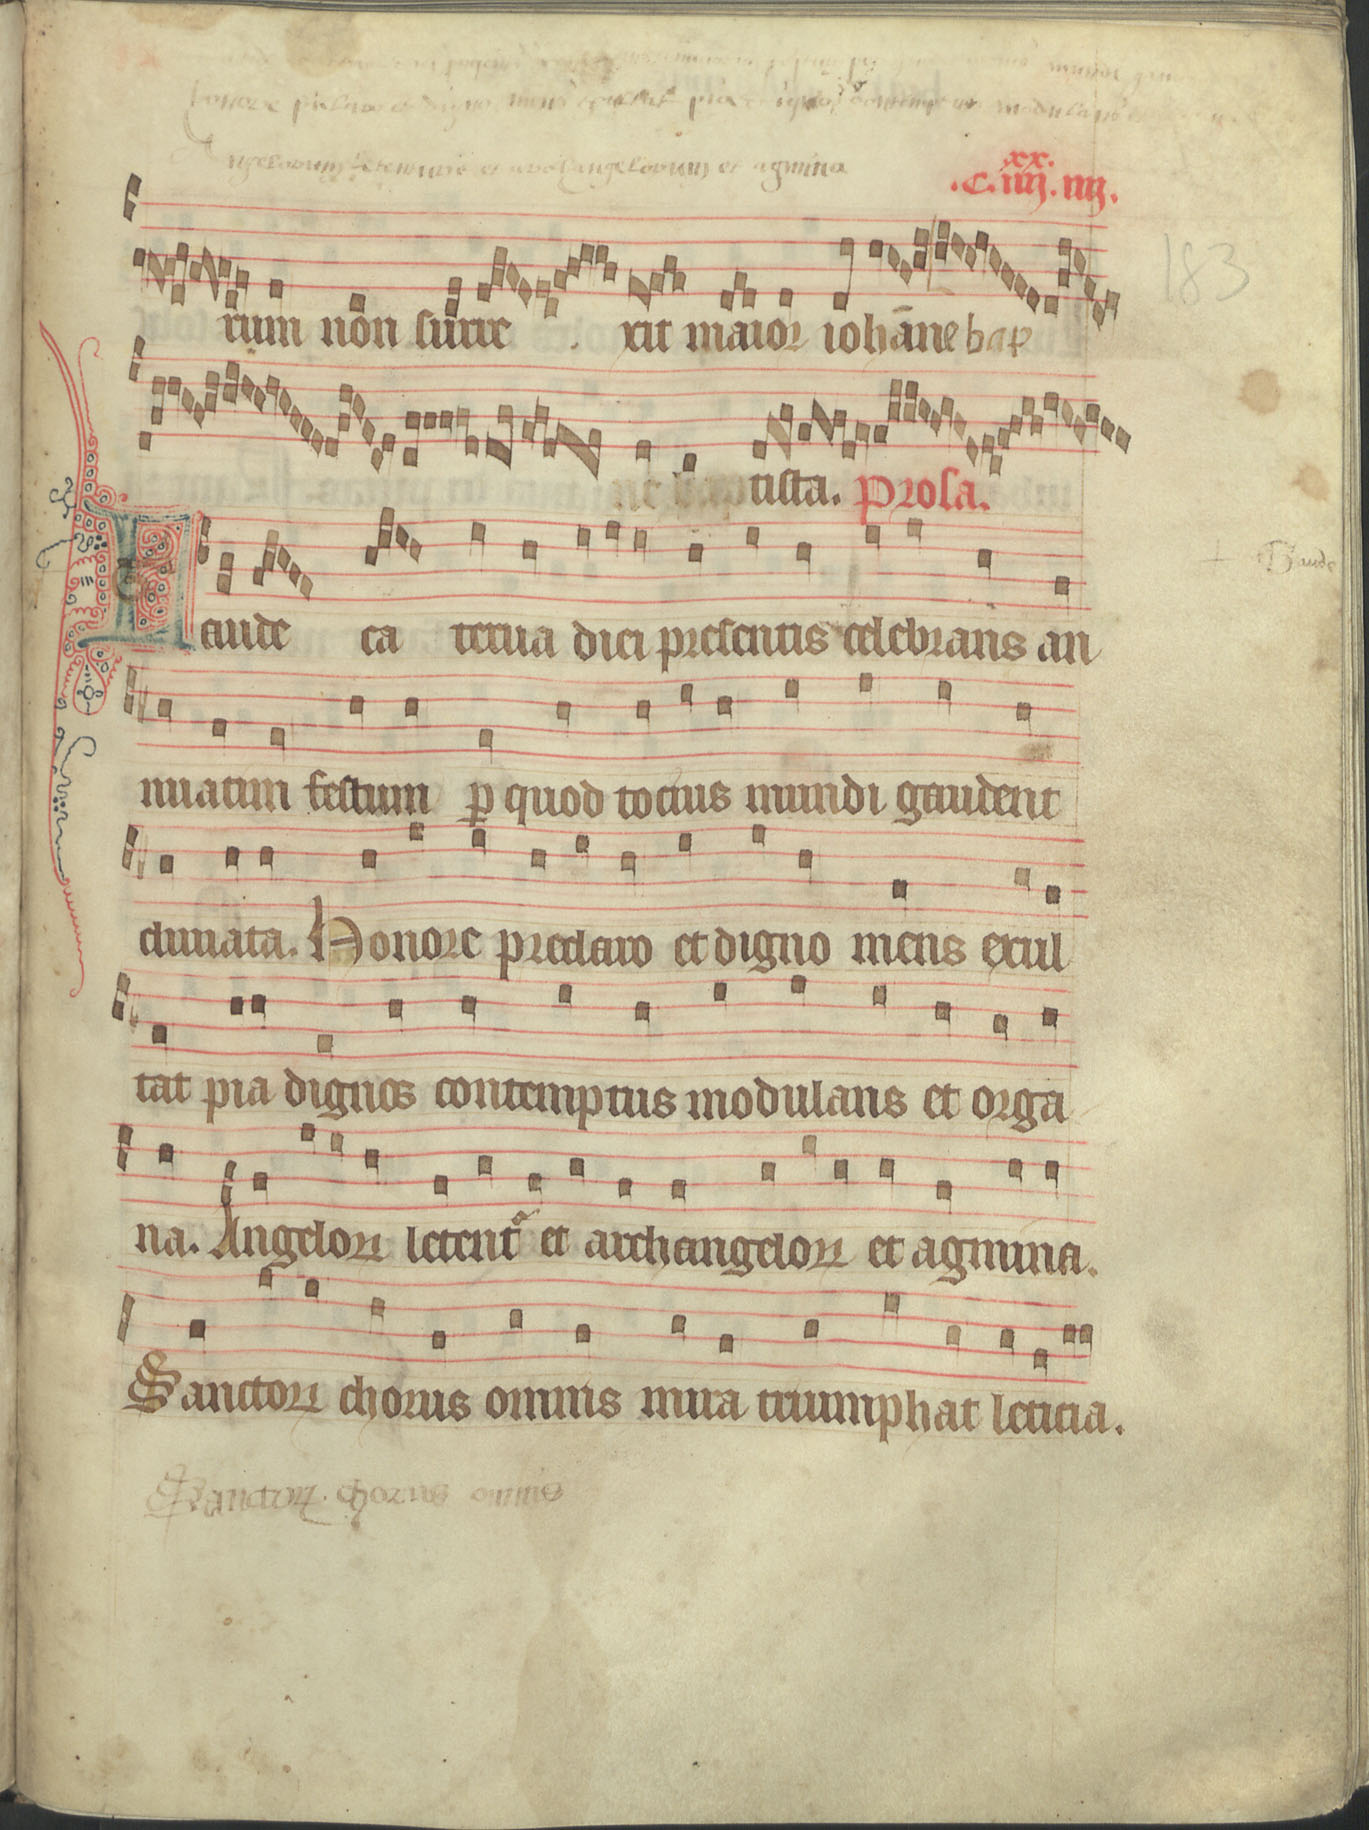 honore preclaro et digno mens exultat pia dignos contemptus modulans
Angelorum letentur et archangelorum et agmina
xx.
.c.iiij.iiij.
183
rum non surre xit maior iohāne bap
tista. Prosa.
Gaude
aude ca terua diei presentis celebrans an
nuatim festum ꝑ quod tocius mundi gaudent
clımata. Honore preclaro et digno mens exul
tat pia dignos contemptus modulans et orga
na. Angeloꝝ letentᷣ et archangeloꝝ et agmina.
Sanctoꝝ chorus omnis mira triumphat leticia.
Sanctoꝝ chorus omnis